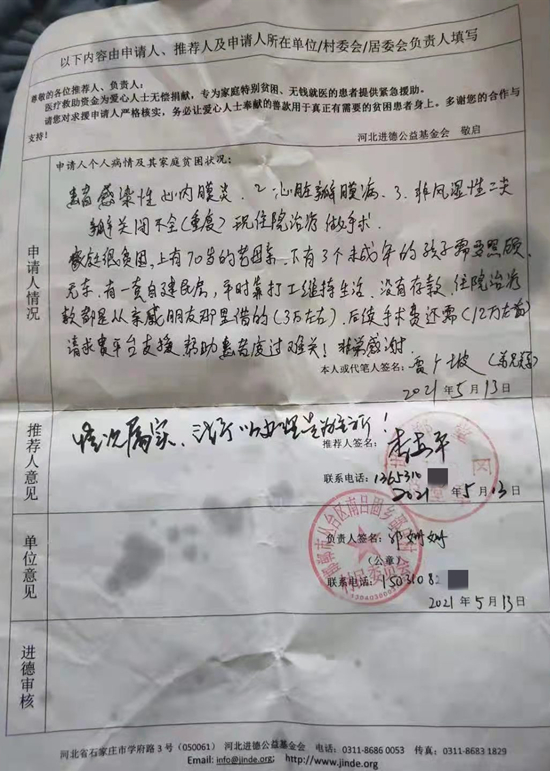 以下内容由申请人、推荐人及申请人所在单位/村委会/居委会负责人填写
尊敬的各位推荐人、负责人：
医疗救助资金为爱心人士无偿捐献，专为家庭特别贫困、无钱就医的患者提供紧急援助。
请您对求援申请人严格核实，务必让爱心人士奉献的善款用于真正有需要的贫困患者身上。多谢您的合作与
支持！
河北进德公益基金会 敬启
申请人情况
申请人个人病情及其家庭贫困状况：
患者感染性心内膜炎．2 心脏瓣膜病．3．非风湿性二尖
瓣关闭不全(重度) 现住院治疗做手术
家庭很贫困，上有70岁的老母亲，下有3个未成年的孩子需要照顾
无车．有一套自建民房，平时靠打工维持生活，没有存款，住院治疗
款都是从亲戚朋友那里借的(3万左右)，后续手术费还需(12万左右)
请求贵平台支援 帮助患者度过难关！非常感谢．
本人或代笔人签名：
2021年5月13日
推荐人意见
情况属实，
推荐人签名：
联系电话：1365310
2021年5月13日
单位意见
负责人签名：邓姗姗
（公章）
联系电话：15031082
2021年5月13日
进德审核
河北省石家庄市学府路3号（050061） 河北进德公益基金会 电话：0311-8686 0053 传真：0311-8683 1829
Email: info@jinde.org; http://www.jinde.org